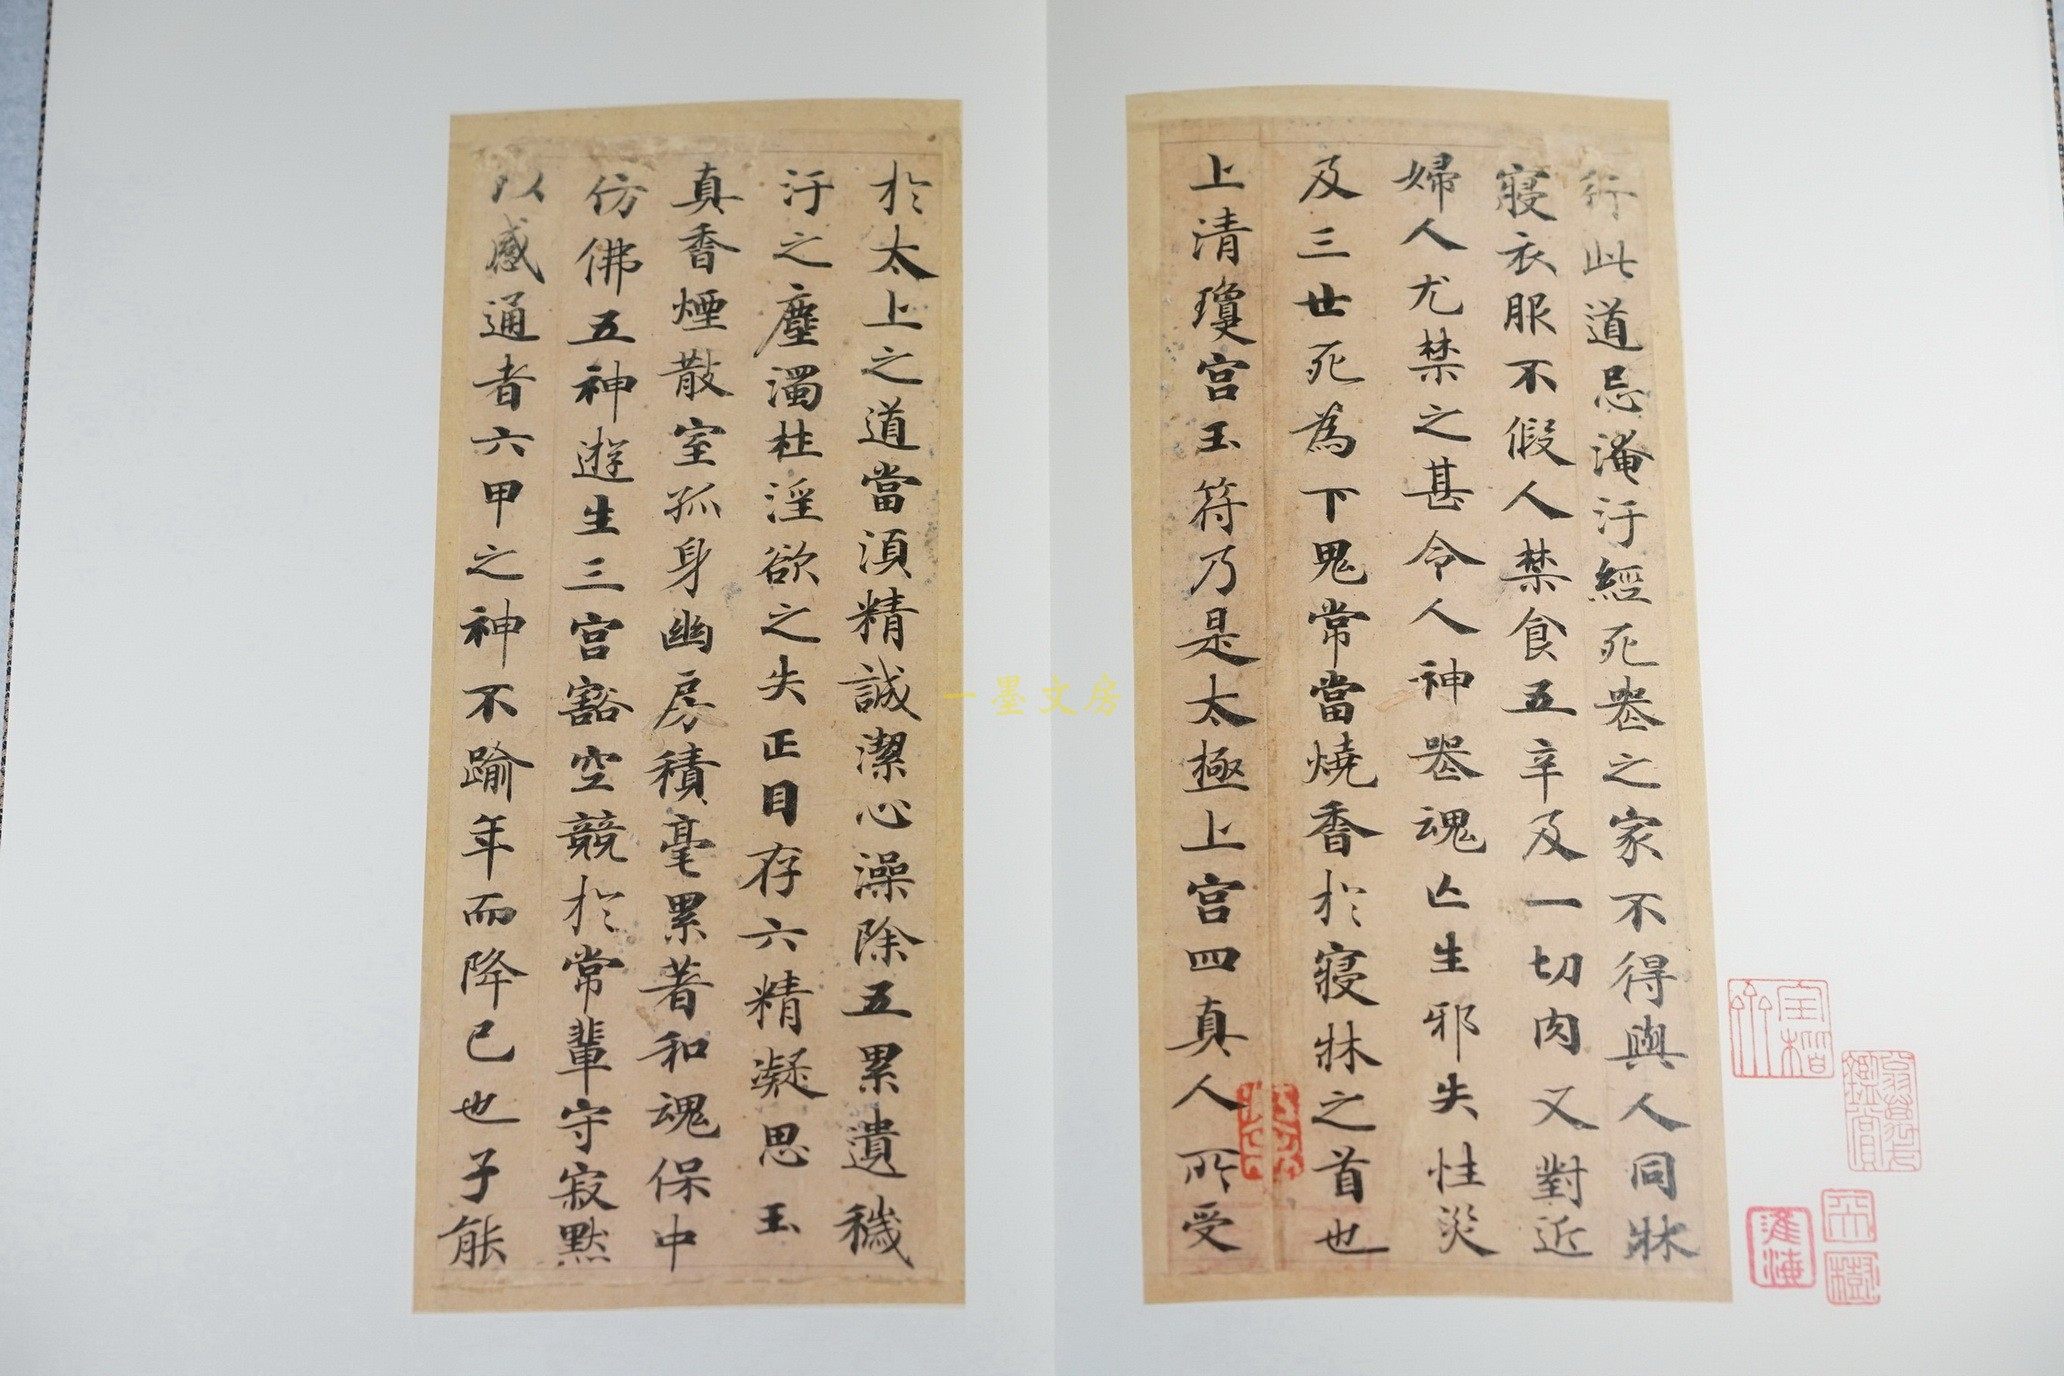 行此道忌淹汙經死喪之家不得與人同牀
寢衣服不假人禁食五辛及一切肉又對近
婦人尤禁之甚令人神喪魂亡生邪失性災
及三世死為下鬼常當燒香於寢牀之首也
上清瓊宮玉符乃是太極上宮四真人所受
於太上之道當須精誠潔心澡除五累遺穢
汙之塵濁杜淫欲之失正目存六精凝思玉
真香煙散室孤身幽房積毫累著和魂保中
仿佛五神遊生三宮豁空競於常輩守寂默
以感通者六甲之神不踰年而降已也子能
一墨文房